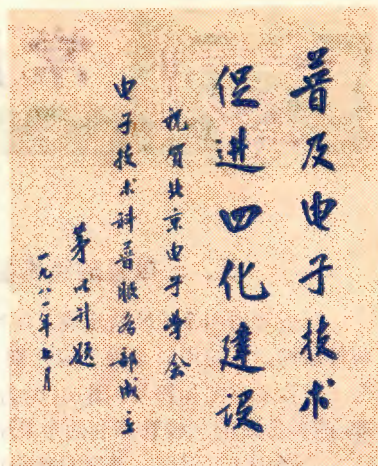 普及电子技术
促进四化建设
祝贺北京电子学会
电子技术科普服务部成立
茅以升题
一九八一年七月